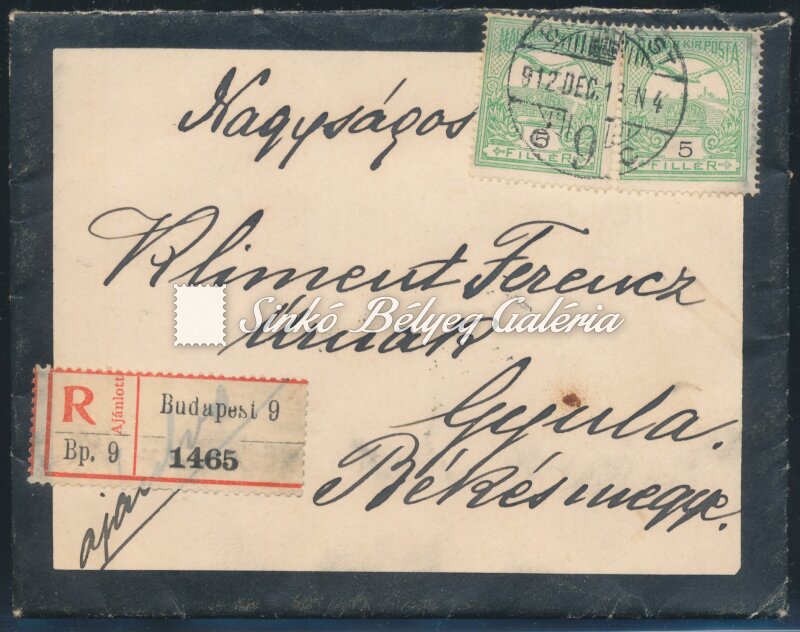 Nagyságos
Kliment Ferencz
Úrnak
Gyula.
Békésmegye.
ajánlva
R
Ajánlott
Budapest 9
Bp. 9
1465
912 DEC. 19 N 4
KIR. POSTA
5
FILLÉR
5
FILLÉR
Sinkó Bélyeg Galéria